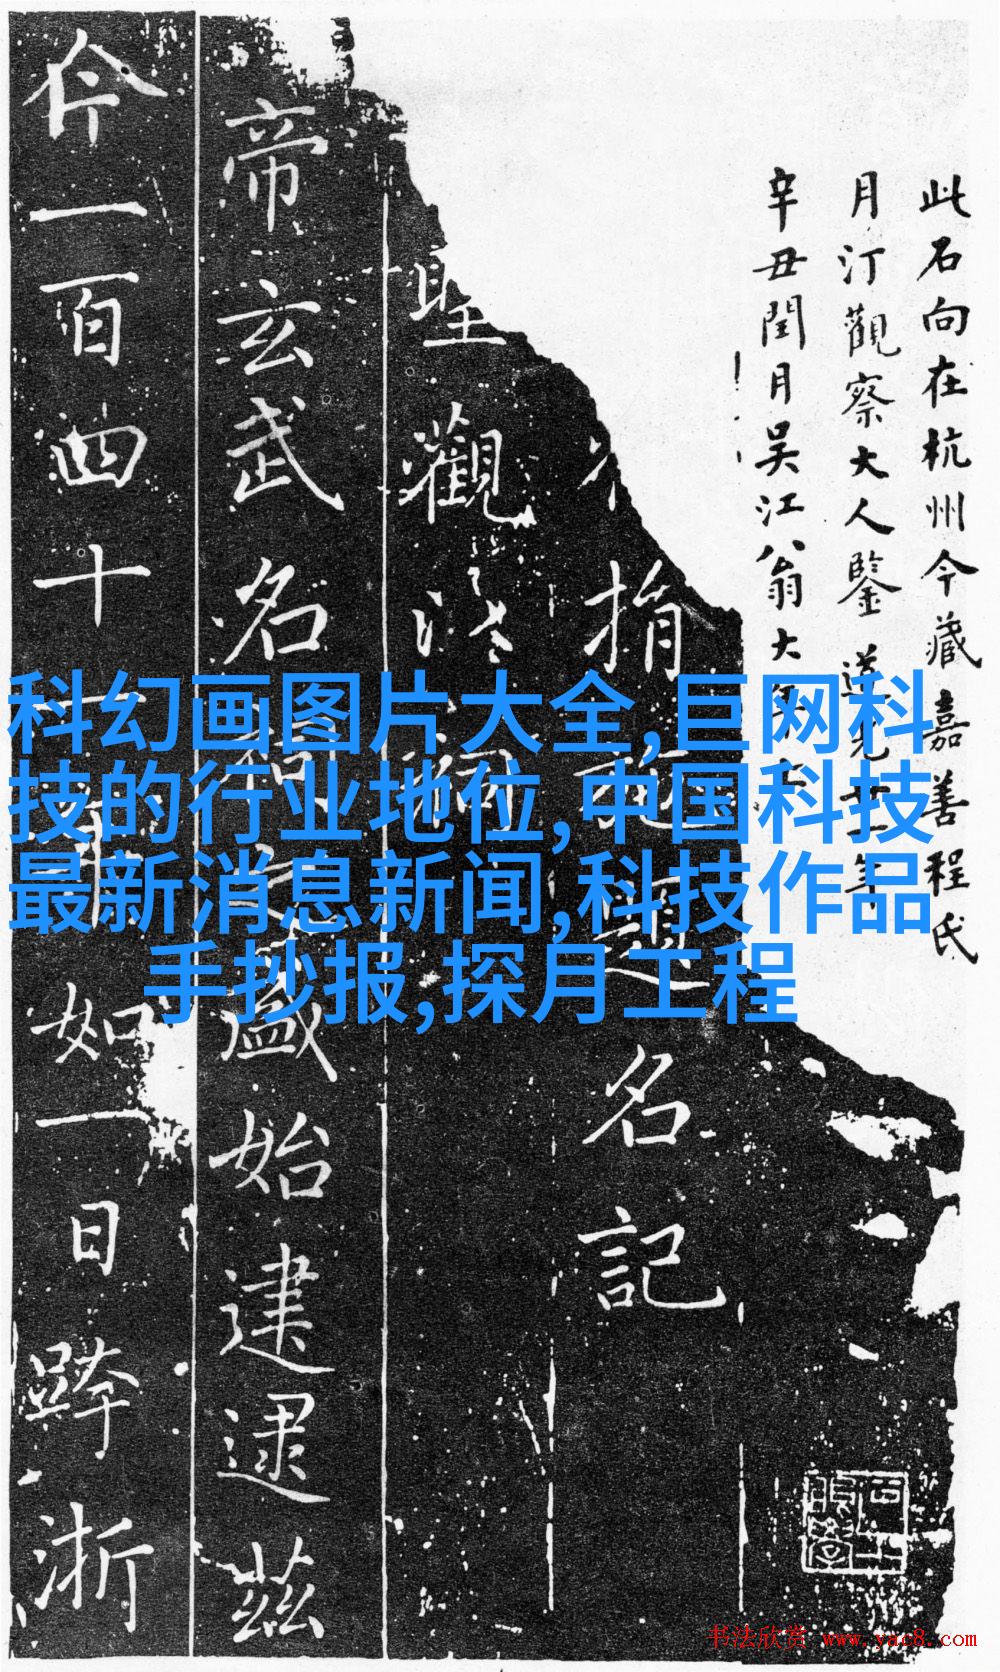 此石向在杭州今藏嘉善程氏
月汀觀察大人鑒 道光廿一年
辛丑閏月吳江翁大年
捐施題名記
觀
帝玄武名盛始建逮茲
一百四十一年如一日蹕浙
科幻画图片大全,巨网科
技的行业地位,中国科技
最新消息新闻,科技作品
手抄报,探月工程
书法欣赏 www.yac8.com